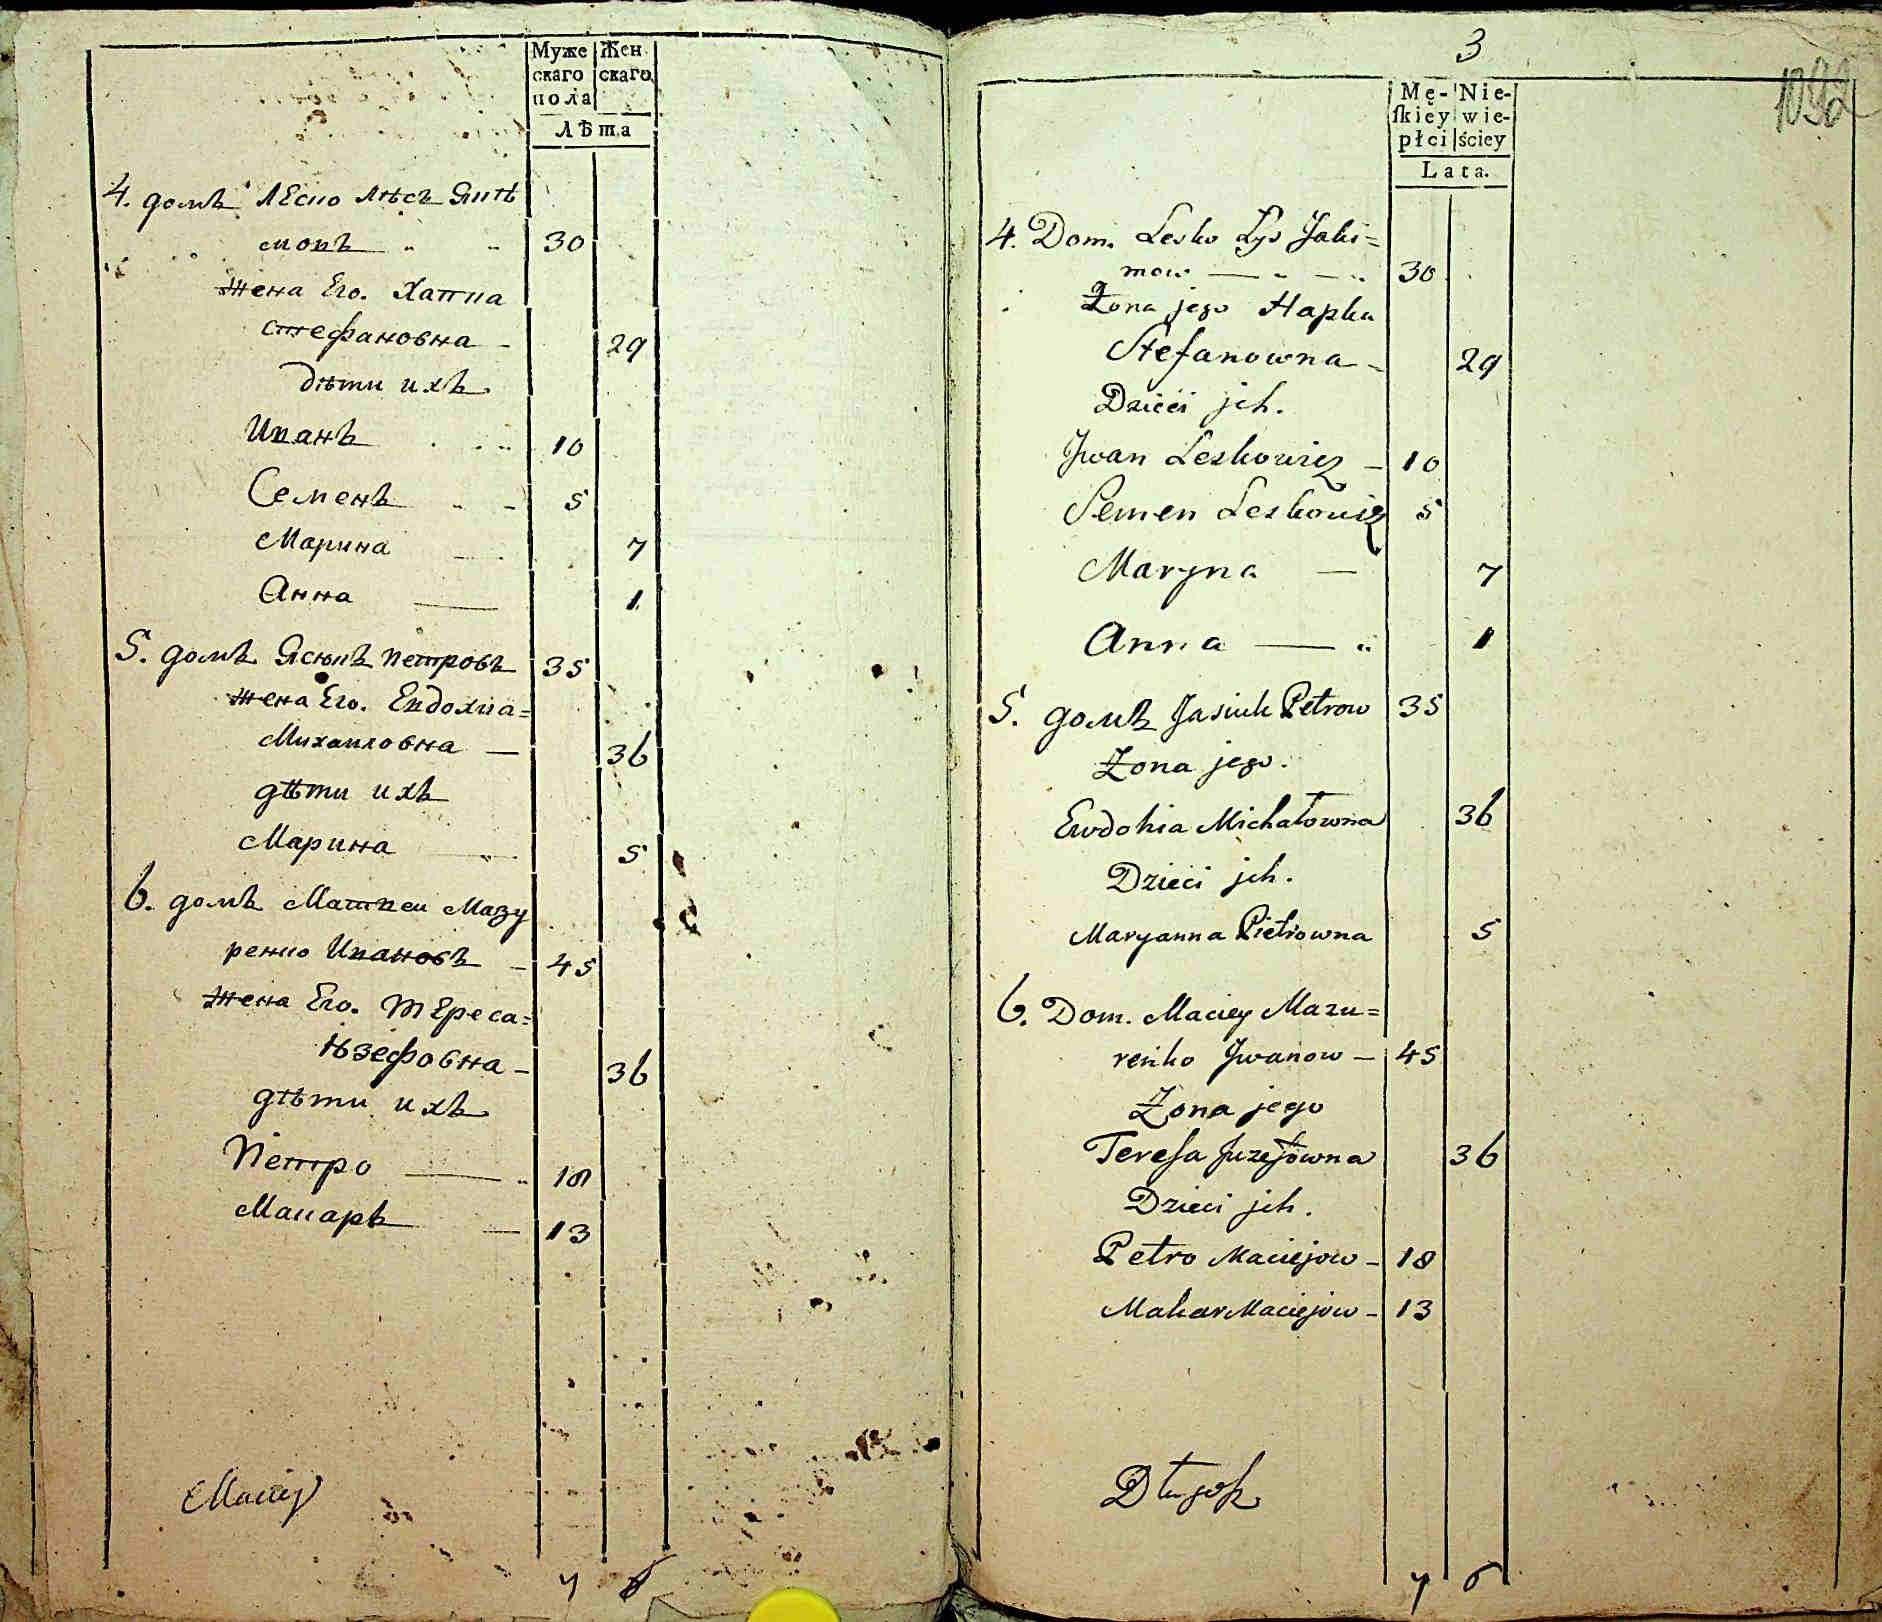 Муже Жен
скаго скаго
пола
Лѣта
4. домъ Леско Лысъ Яки
мовъ 30
жена Его. Хапка
стефановна - 29
дѣти ихъ
Иванъ 10
Семенъ 5
Марина 7
Анна 1
5. домъ Ясюкъ петровъ 35
жена Его. Евдокиа=
Михаиловна — 36
дѣти ихъ
Марина 5
6. домъ Матвеи Мазу
ренко Ивановъ - 45
жена Его. Тереса=
Юзефовна - 36
дѣти ихъ
Петро 18
Макаръ 13
Maciey
7 6
3
1092
Mę- Nie-
ſkiey wie-
płci ściey
Lata.
4. Dom. Lesko Lys Jaki=
mow — 30
Żona jego Hapka
Stefanowna - 29
Dzieci jch.
Jwan Leskowicz - 10
Semen Leskowicz 5
Maryna — 7
Anna — 1
5. домъ Jasiuk Petrow 35
Żona jego.
Ewdokia Michałowna 36
Dzieci jch.
Maryanna Pietrowna 5
6. Dom. Maciey Mazu=
reńko Jwanow - 45
Żona jego
Tereſa Juzefowna 36
Dzieci jch.
Petro Maciejow - 18
Makar Maciejow - 13
Długosz
7 6